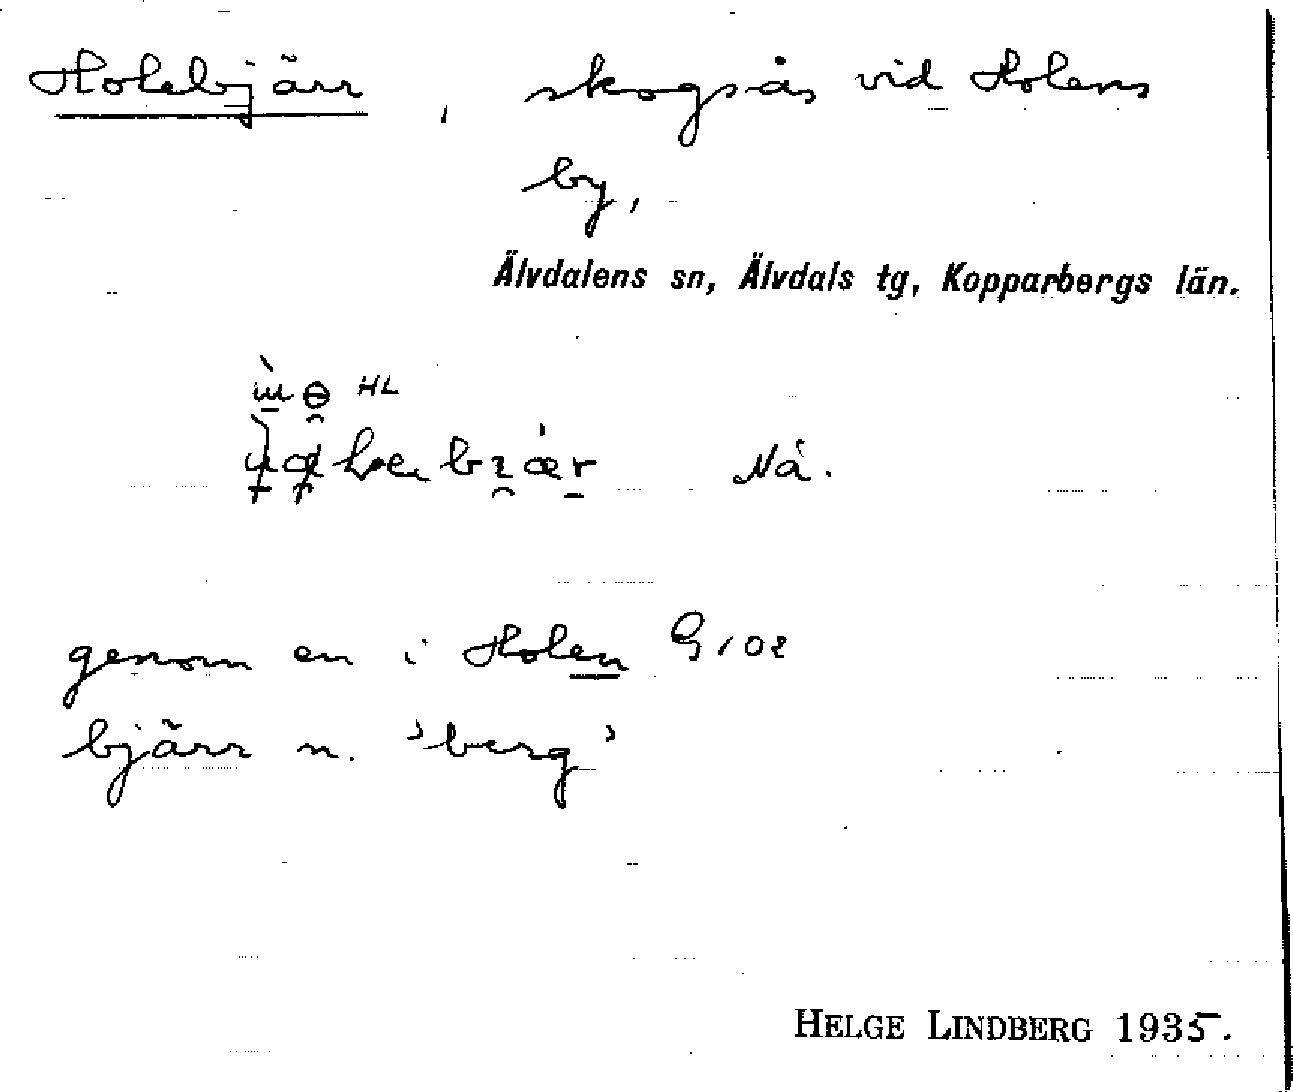 Holebjärr, skogsås vid Holens
by,
Älvdalens sn, Älvdals tg, Kopparbergs län.
HL
Nå.
genom en i Holen G 102
bjärr n. 'berg'
HELGE LINDBERG 1935.